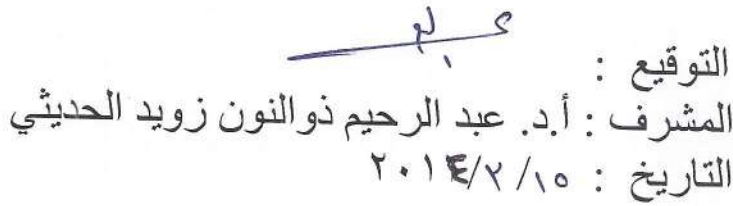 التوقيع :
المشرف : أ.د. عبد الرحيم ذو النون زويد الحديثي
التاريخ : ١٥/ ٢/ ٢٠١٤